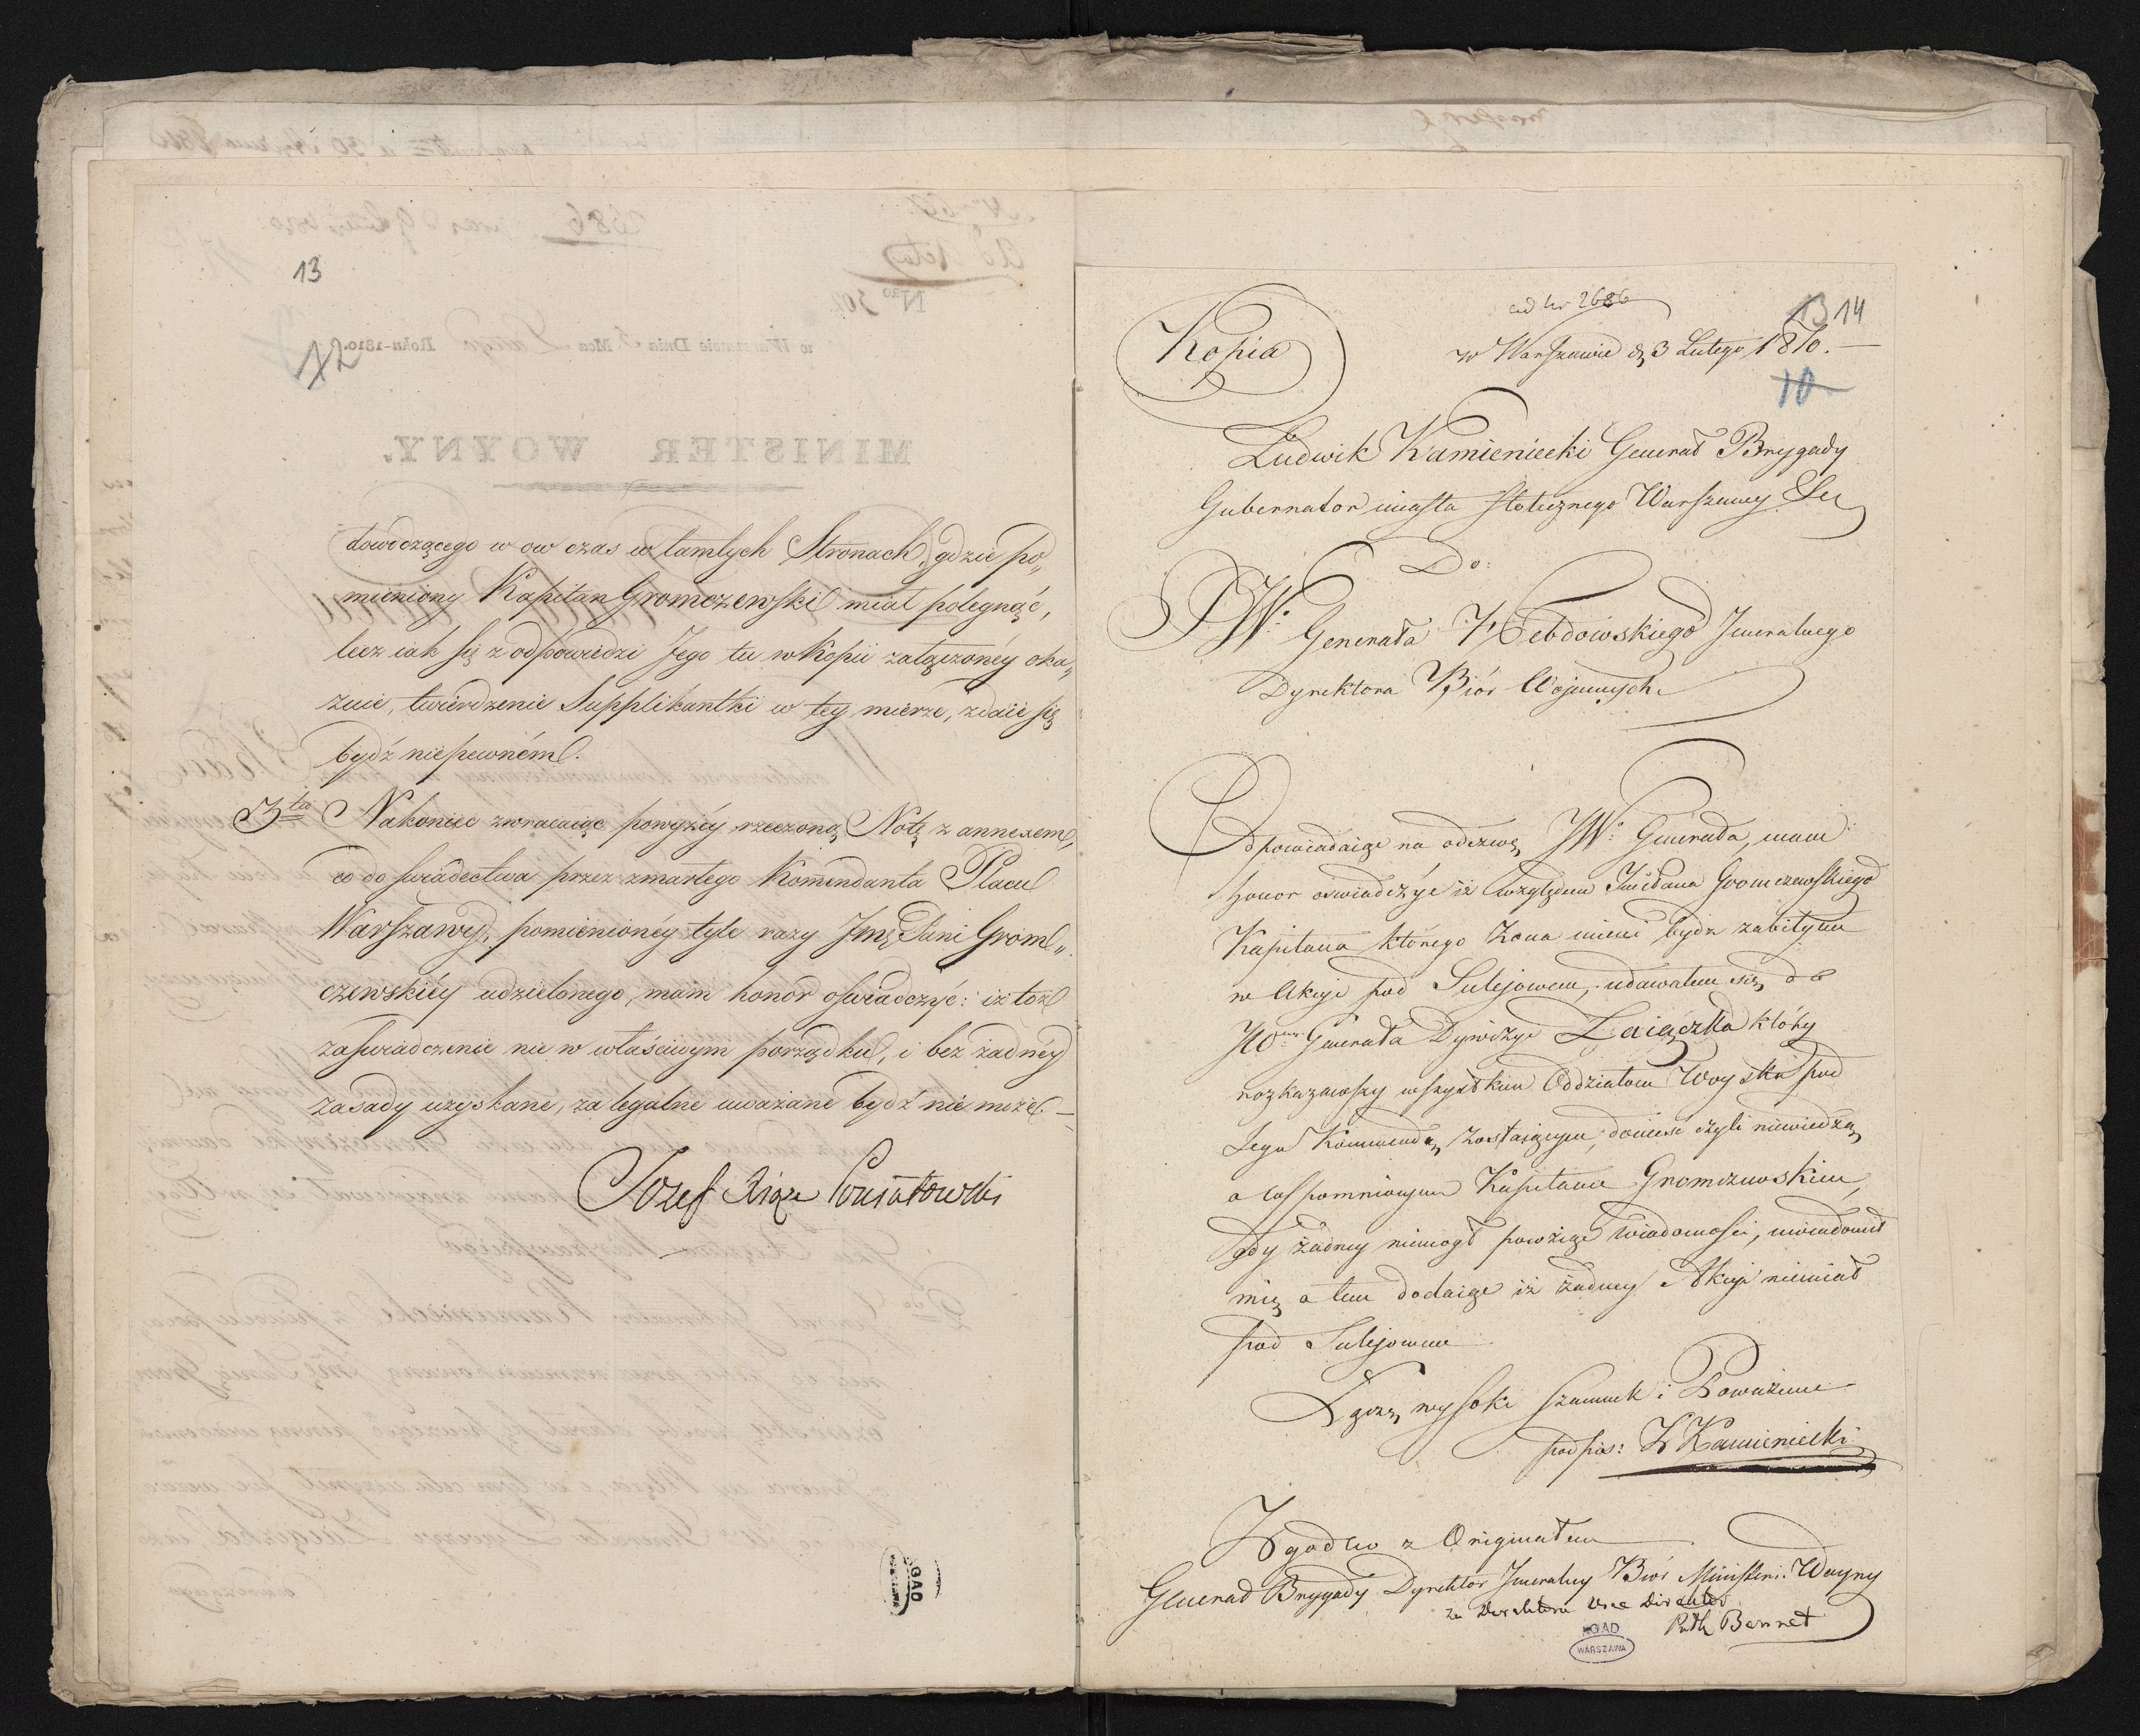 13
12
dowodzącego w ow czas w tamtych Stronach, gdzie po„
mieniony Kapitan Gromczewski miał polegnąć,
lecz iak się z odpowiedzi Jego tu w Kopii załączonéy oka„
zuie, twierdzenie Supplikantki w tey mierze, zdaie się
bydź niepewném.
3tio Nakoniec zwracaiąc powyżéy rzeczoną Notę z annexem,
co do świadectwa przez zmarłego Kommendanta Placu
Warszawy, pomienionéy tyle razy Jmć Pani Grom„
czewskiéy udzielonego, mam honor oświadczyć: iż toż
zaświadczenie nie w właściwym porządku, i bez żadnéy
zasady uzyskane, za legalne uważane bydź nie może. —
Jozef Xiąże Poniatowski
AGAD
WARSZAWA
ad Nr 2686
13 14
Kopia
w Warszawie d. 3 Lutego 1810. —
10
Ludwik Kamieniecki Generał Brygady
Gubernator miasta stołecznego Warszawy &c
Do:
JW: Generała Hebdowskiego Jeneralnego
Dyrektora Biór Wojennych.
Odpowiadaiąc na odezwę JW: Generała, mam
honor oświadczyć iż względem Jmć Pana Gromczewskiego
Kapitana którego Żona mieni bydź zabitym
w Akcyi pod Sulejowem, udawałem się do
JW Generała Dywizyi Zaiączka który
rozkazawszy wszystkim Oddziałom Woyska pod
Jego Kommendą zostaiącym, donieść czyli niewiedzą
o wspomnionym Kapitanie Gromczewskim,
gdy żadney niemógł powziąć wiadomości, uwiadomił
mię o tem dodaiąc iż żadney Akcyi niemiał
pod Sulejowem
Łączę wysoki szacunek i Poważanie
podpis: L Kamieniecki
Zgodno z Originałem
Generał Brygady Dyrektor Jeneralny Biór Minister: Woyny
za Dyrektora Vice Direktor
Bennet
AGAD
WARSZAWA